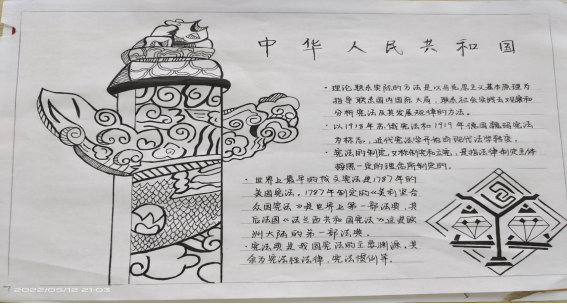 中华人民共和国
·理论联系实际的方法是以马克思主义基本原理为
指导联系国内国际大局，联系社会实践去观察和
分析宪法及其发展规律的方法。
·以1918年苏俄宪法和1919年德国魏玛宪法
为标志，近代宪法学开始向现代法学转变。
·宪法的制定，又称制宪和立宪，是指法律制定主体
按照一定的理念所制定的。
·世界上最早的成文宪法是1787年的
美国宪法。1787年制定的《美利坚合
众国宪法》是世界上第一部法典，其
后法国《法兰西共和国宪法》这是欧
洲大陆的第一部法典。
·宪法典是我国宪法的主要渊源，其
余为宪法性法律、宪法惯例等。
2022/05/12 21:03